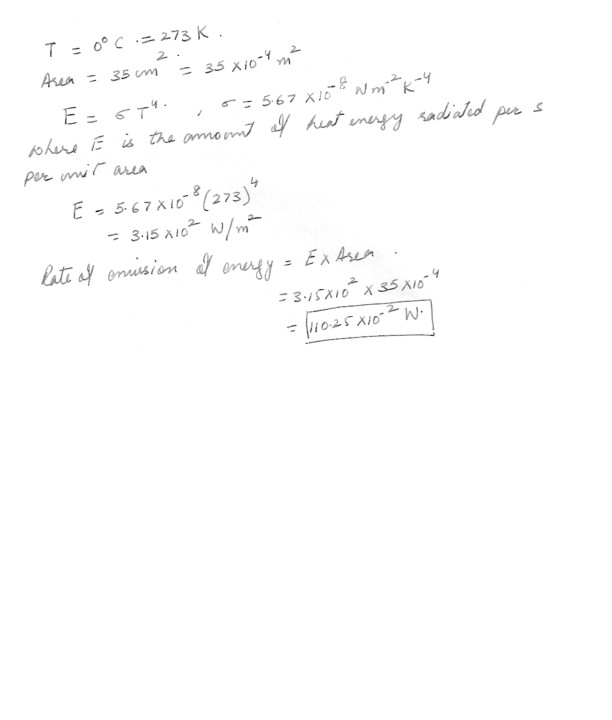 T = 0° C .= 273 K .
Area = 35 cm² = 35 x10⁻⁴ m²
E = σ T⁴ . , σ = 5.67 x10⁻⁸ W m⁻² K⁻⁴
where E is the amount of heat energy radiated per s
per unit area
E = 5.67 x10⁻⁸ (273)⁴
= 3.15 x10² W/m²
Rate of emission of energy = E x Area .
= 3.15x10² x 35 x10⁻⁴
= 110.25 x10⁻² W.